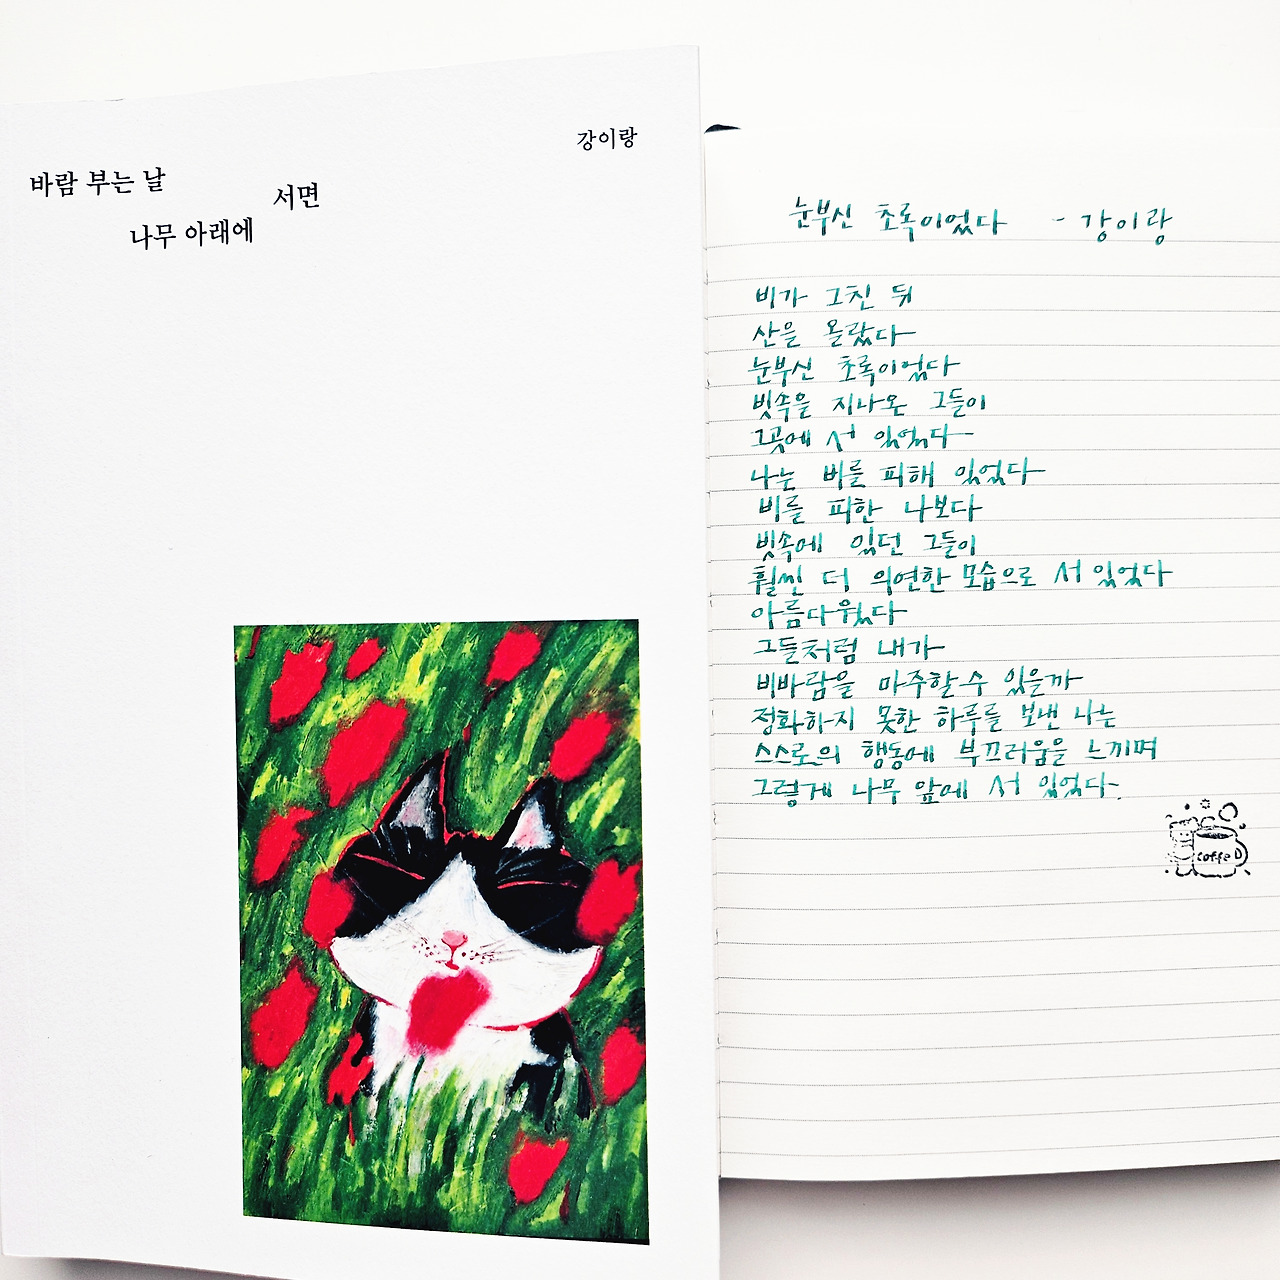 강이랑
바람 부는 날
서면
나무 아래에
눈부신 초록이었다 - 강이랑
비가 그친 뒤
산을 올랐다
눈부신 초록이었다
빗속을 지나온 그들이
그곳에 서 있었다
나는 비를 피해 있었다
비를 피한 나보다
빗속에 있던 그들이
훨씬 더 의연한 모습으로 서 있었다
아름다웠다
그들처럼 내가
비바람을 마주할 수 있을까
정화하지 못한 하루를 보낸 나는
스스로의 행동에 부끄러움을 느끼며
그렇게 나무 앞에 서 있었다.
coffee